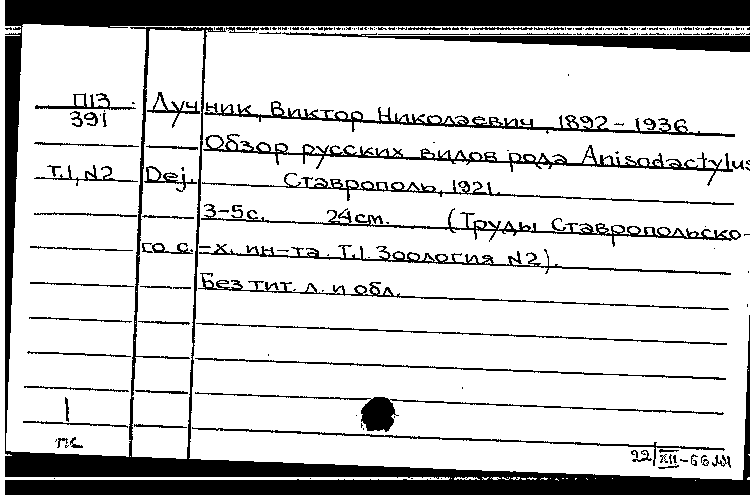 П13 Лучник, Виктор Николаевич, 1892-1936.
391
Обзор русских видов рода Anisodactylus
Т.1, N2 Dej. Ставрополь, 1921.
3-5с. 24cm. (Труды Ставропольско-
го с.=х. ин-та. Т.1. Зоология N2).
Без тит. л. и обл.
1
пс
22/XII-66